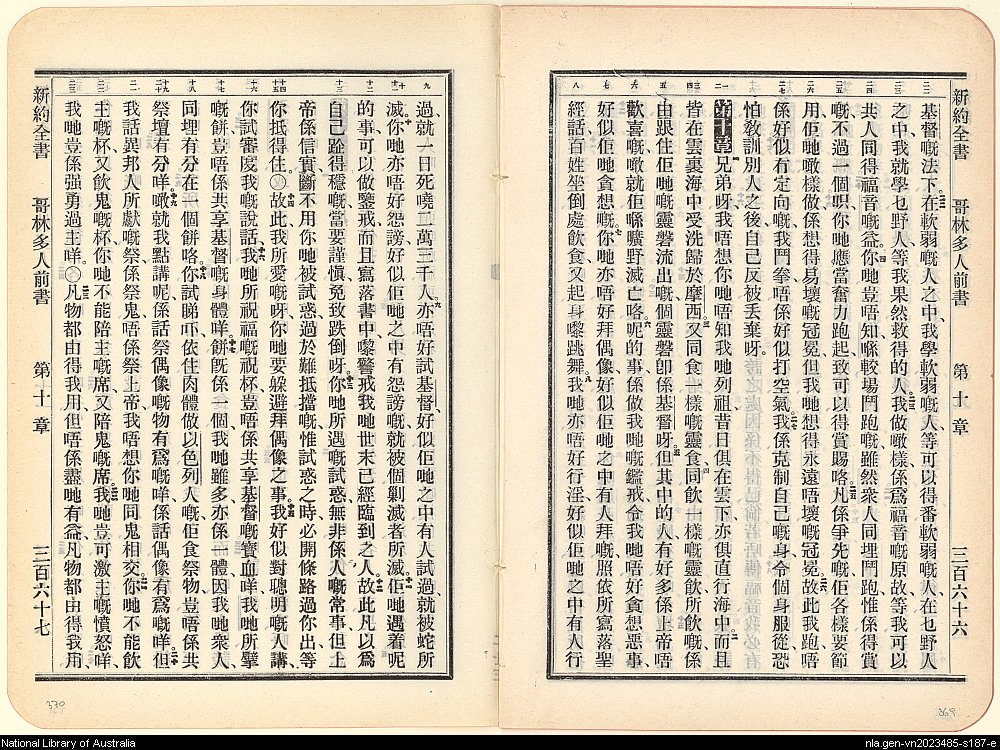 新約全書 哥林多人前書 第十章 三百六十六
基督嘅法下、在軟弱嘅人之中、我學軟弱嘅人、等可以得番軟弱嘅人、在乜野人
之中、我就學乜野人、等我果然救得的人、我做噉樣、係爲福音嘅原故、等我可以
共人同得福音嘅益。你哋豈唔知喺較場鬥跑嘅、雖然衆人同埋鬥跑、惟係得賞
嘅不過一個呮、你哋應當奮力跑起、致可以得賞賜咯。凡係爭先嘅、佢各樣要節
用、佢哋噉樣做、係想得易壞嘅冠冕、但我哋想得永遠唔壞嘅冠冕、故此我跑、唔
係好似有定向嘅、我鬥拳、唔係好似打空氣。我係克制自己嘅身、令個身服從、恐
怕教訓別人之後、自己反被丟棄呀。
第十章 兄弟呀、我唔想你哋唔知、我哋列祖昔日俱在雲下、亦俱直行海中、而且
皆在雲裏海中受洗歸於摩西、又同食一樣嘅靈食、同飲一樣嘅靈飲、所飲嘅係
由跟住佢哋嘅靈磐流出嘅、個靈磐卽係基督呀。但其中的人、有好多係上帝唔
歡喜嘅、噉就佢哋喺曠野滅亡咯。呢的事、係做我哋嘅鑑戒、令我哋唔好貪想惡事、
好似佢哋貪想嘅、你哋亦唔好拜偶像、好似佢哋之中有人拜嘅、照依所寫落聖
經話、百姓坐倒處飲食、又起身嚟跳舞、我哋亦唔好行淫、好似佢哋之中有人行
過、就一日死嘵二萬三千人。亦唔好試基督、好似佢哋之中有人試過、就被蛇所
滅、你哋亦唔好怨謗、好似佢哋之中有怨謗嘅、就被個剿滅者所滅、佢哋遇着呢
的事、可以做鑒戒、而且寫落書中、嚟警戒我哋世末已經臨到之人、故此凡以爲
自己跕得穩嘅、當要謹愼、免致跌倒呀、你哋所遇嘅試惑、無非係人嘅常事、但上
帝係信實、斷不用你哋被試惑過於難抵擋嘅、惟試惑之時、必開條路過你出、等
你抵得住。故此我所愛嘅呀、你哋要躱避拜偶像之事、我好似對聰明嘅人講、
你試審度我嘅說話、我哋所祝福嘅祝杯、豈唔係共享基督嘅寶血咩、我哋所擘
嘅餅、豈唔係共享基督嘅身體咩。餅旣係一個、我哋雖多、亦係一體、因我哋衆人
同埋有分在一個餅咯、你試睇吓、依住肉體做以色列人嘅、佢食祭物、豈唔係共
祭壇有分咩。噉就我點講呢、係話祭偶像嘅物有爲嘅咩、係話偶像有爲嘅咩。但
我話異邦人所獻嘅祭、係祭鬼、唔係祭上帝、我唔想你哋同鬼相交、你哋不能飲
主嘅杯、又飲鬼嘅杯、你哋不能陪主嘅席、又陪鬼嘅席。我哋豈可激主嘅憤怒咩、
我哋豈係強勇過主咩。凡物都由得我用、但唔係盡哋有益、凡物都由得我用
新約全書 哥林多人前書 第十章 三百六十七
370
369
National Library of Australia
nla.gen-vn2023485-s187-e